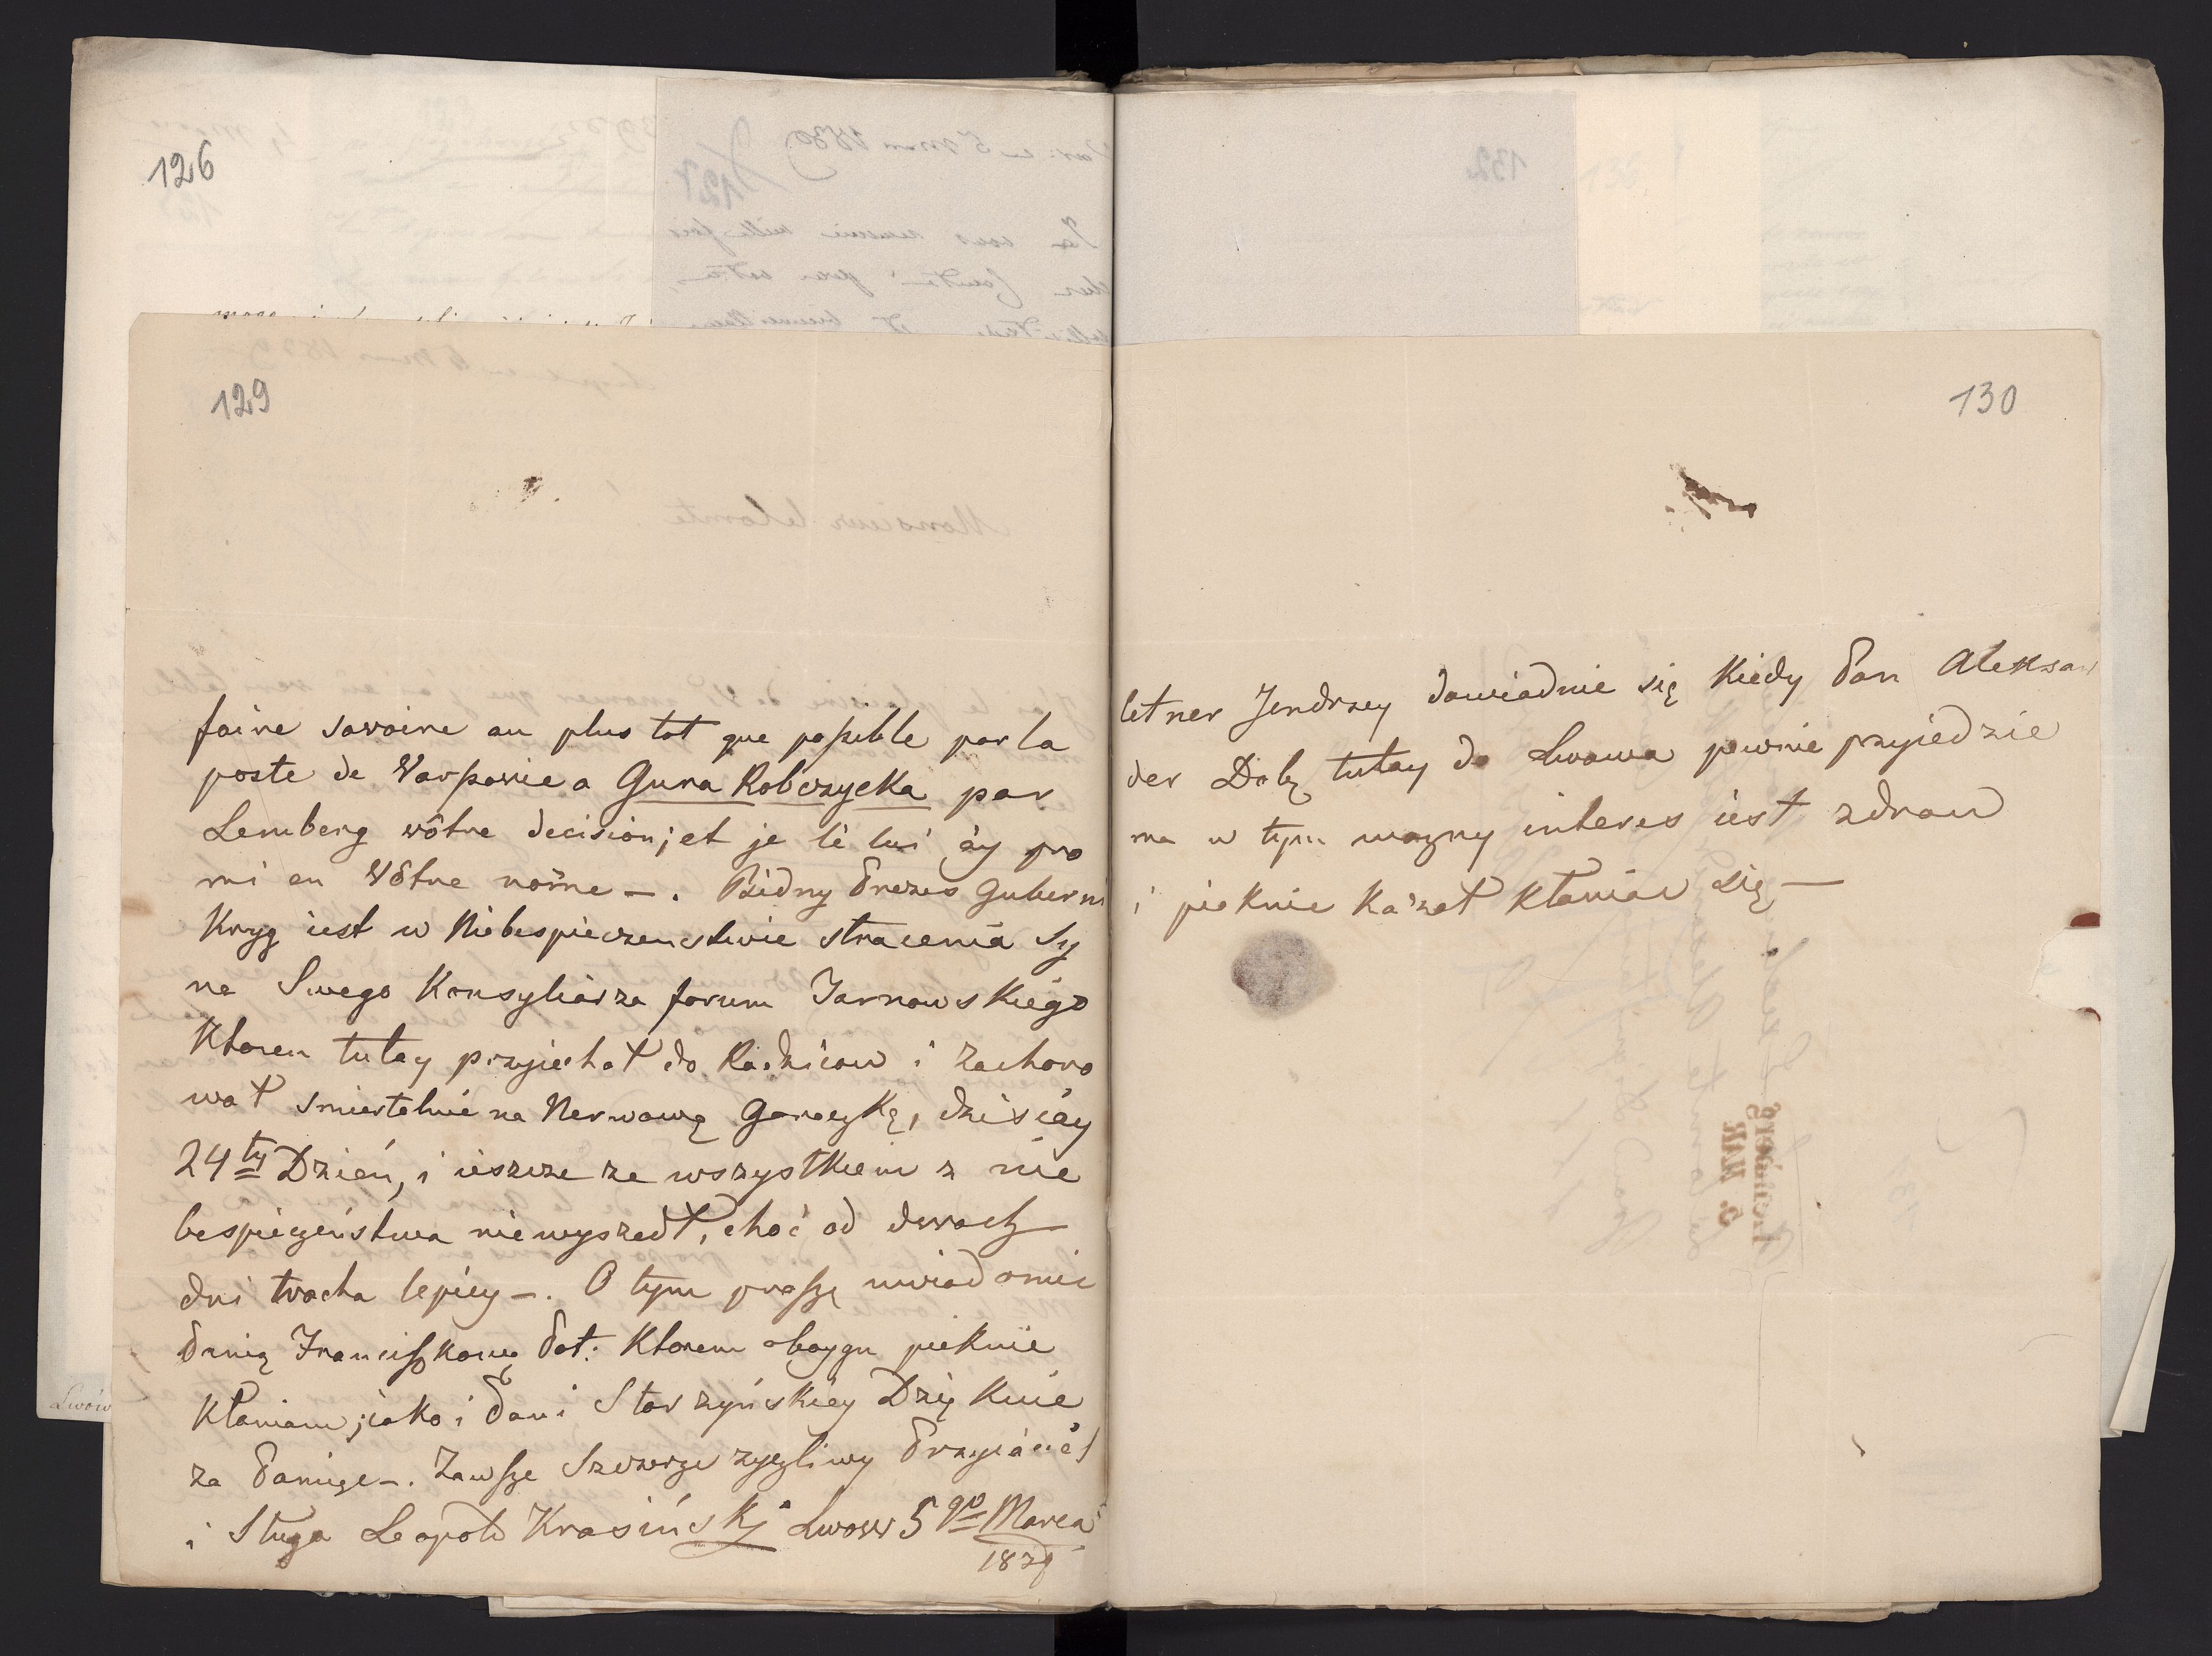 126
129
faire savoire au plus tot que possible par la
poste de Varsovie a Gura Robczycka par
Lemberg vôtre decision; et je lé lui áy pro
mi en Vôtre nome —. Biédny Prezes Guberni
Kryg iest w Niebespieczenstwie stracenia Sy
na Swego Konsyliarza forum Tarnowskiégo
Ktoren tutay przyiechał do Rodzicow i zachoro
wał smiertelnie na Nerwową Gorączkę, dzisiáy
24ty Dzień, i ieszcze ze wszystkiem z nie
bespieczeństwa niewyszedł, choć od dwoch
dni trocha lepiéy —. O tym proszę uwiadomic
Panią Franciszkową Pot: Ktorem oboygu pieknie
Kłaniam, jako i Pani Starzyńskiéy Dzię Kuie
za Pamięc —. Zawsze Szczerze zyczliwy Przyiáciél
i Sługa Leopold Krasiński Lwow 5go Marca
1829
130
letner Jendrzey dowiadnie się Kiedy Pan Aleksan
der Dobę tutay do Lwowa pewnie przyiedzie
ma w tym wazny interes iest zdrow
i pieknie Kazał Kłaniac się —
Lwów